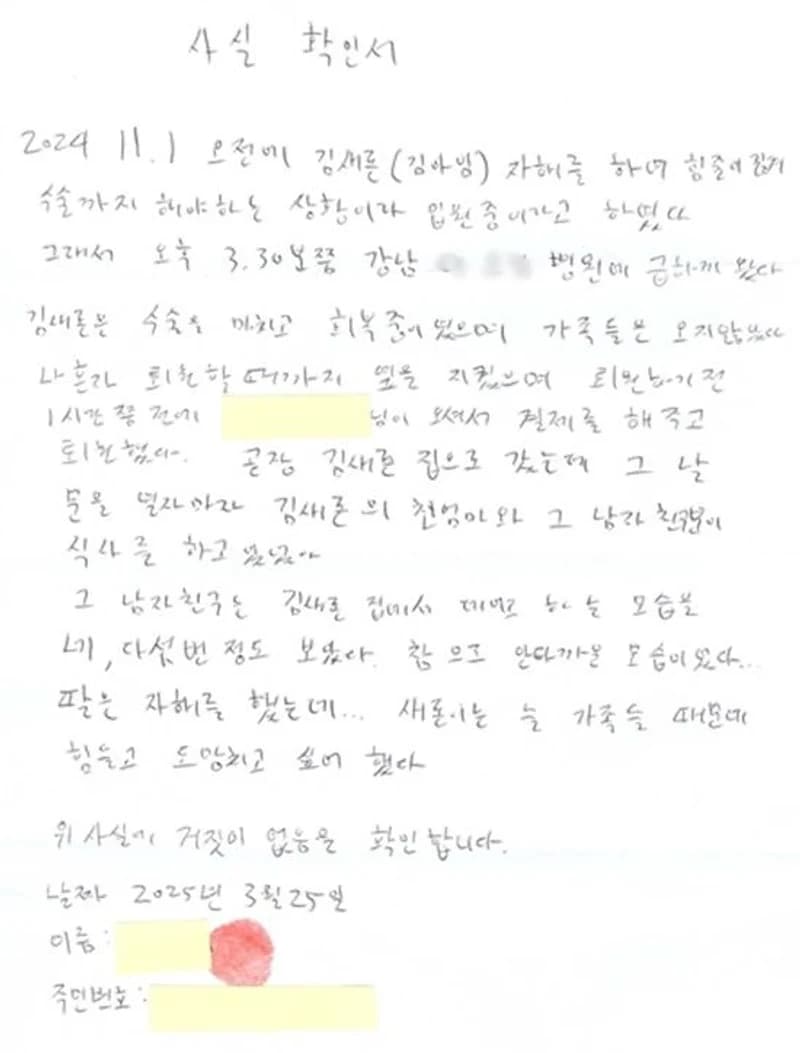 사실 확인서
2024 11.1 오전에 김새론(김아임) 자해를 하여 힘줄이 끊겨
수술까지 해야하는 상황이라 입원중이라고 하였다
그래서 오후 3.30분쯤 강남 병원에 급하게 왔다
김새론은 수술을 마치고 회복중이였으며 가족들은 오지않았다
나 혼자 퇴원할때까지 옆을 지켰으며 퇴원하기전
1시간 쯤 전에 님이 오셔서 결제를 해주고
퇴원했다. 곧장 김새론 집으로 갔는데 그 날
문을 열자마자 김새론의 친엄마와 그 남자친구분이
식사를 하고 있었다
그 남자친구는 김새론 집에서 데이트 하는 모습을
네, 다섯번 정도 보았다. 참으로 안타까운 모습이였다...
딸은 자해를 했는데... 새론이는 늘 가족들 때문에
힘들고 도망치고 싶어 했다
위 사실에 거짓이 없음을 확인합니다.
날짜 2025년 3월25일
이름:
주민번호: